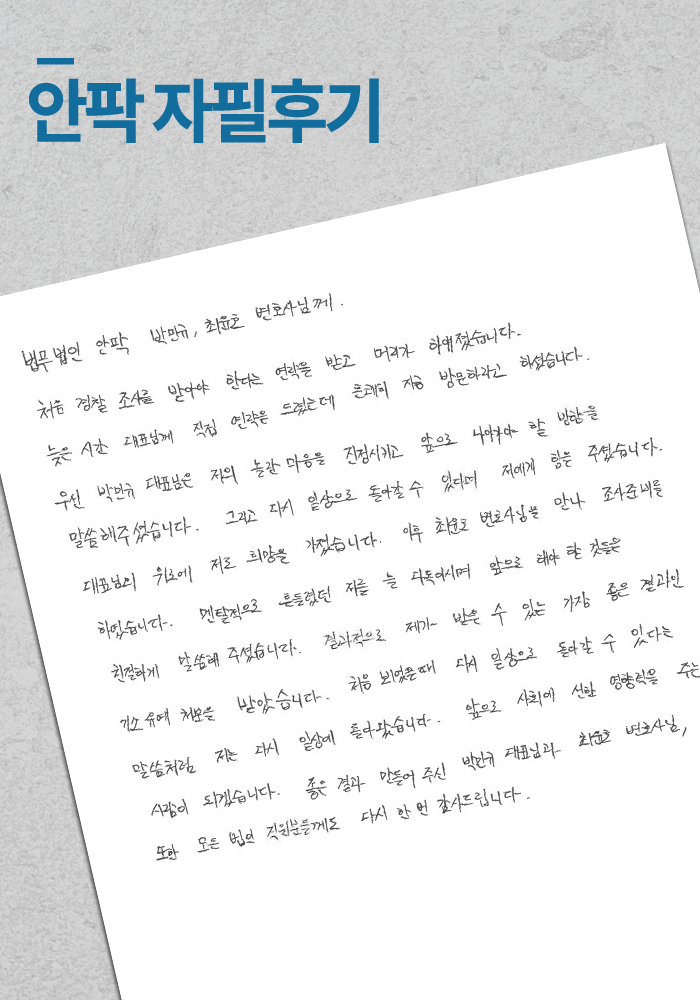 안팍 자필후기
법무법인 안팍 박만규, 최윤호 변호사님께.
처음 경찰 조사를 받아야 한다는 연락을 받고 머리가 하얘졌습니다.
늦은 시간 대표님께 직접 연락을 드렸는데 흔쾌히 지금 방문하라고 하셨습니다.
우선 박만규 대표님은 저의 놀란 마음을 진정시키고 앞으로 나아가야 할 방향을
말씀해주셨습니다. 그리고 다시 일상으로 돌아갈 수 있다며 저에게 힘을 주셨습니다.
대표님의 위로에 저도 희망을 가졌습니다. 이후 최윤호 변호사님을 만나 조사준비를
하였습니다. 멘탈적으로 흔들렸던 저를 늘 다독여시며 앞으로 해야 할 것들을
친절하게 말씀해 주셨습니다. 결과적으로 제가 받은 수 있는 가장 좋은 결과인
기소유예 처분을 받았습니다. 처음 뵈었을때 다시 일상으로 돌아갈 수 있다는
말씀처럼 저는 다시 일상에 돌아왔습니다. 앞으로 사회에 선한 영향력을 주는
사람이 되겠습니다. 좋은 결과 만들어 주신 박만규 대표님과 최윤호 변호사님,
또한 모든 법인 직원분들께도 다시 한 번 감사드립니다.